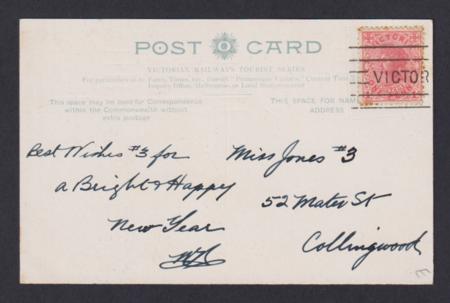 POST CARD
VICTORIAN RAILWAYS TOURIST SERIES
For particulars as to Fares, Times, etc., consult "Picturesque Victoria," Current Time
Inquiry Office, Melbourne, or Local Stationmaster
This space may be used for Correspondence
within the Commonwealth without
extra postage
THIS SPACE FOR NAME
ADDRESS
VICTORIA
VICTOR
Best Wishes #3 for
a Bright & Happy
New Year
Miss Jones #3
52 Mater St
Collingwood